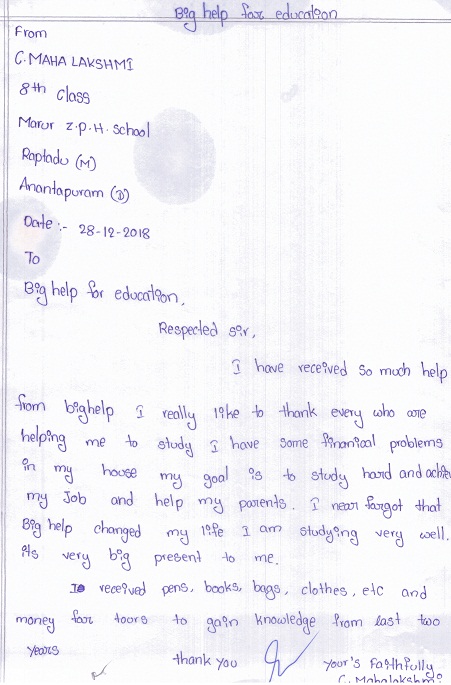 Big help for education
From
C. MAHA LAKSHMI
8th class
Marur z.p.H. School
Raptadu (M)
Anantapuram (D)
Date :- 28-12-2018
To
Big help for education,
Respected sir,
I have received so much help
from bighelp I really like to thank every who are
helping me to study I have some finanical problems
in my house my goal is to study hard and achie
my Job and help my parents. I near forgot that
Big help changed my life I am studying very well.
its very big present to me.
received pens, books, bags, clothes, etc and
money for toors to gain knowledge from last two
years
thank you
your's Faithfully
C. Mahalakshmi